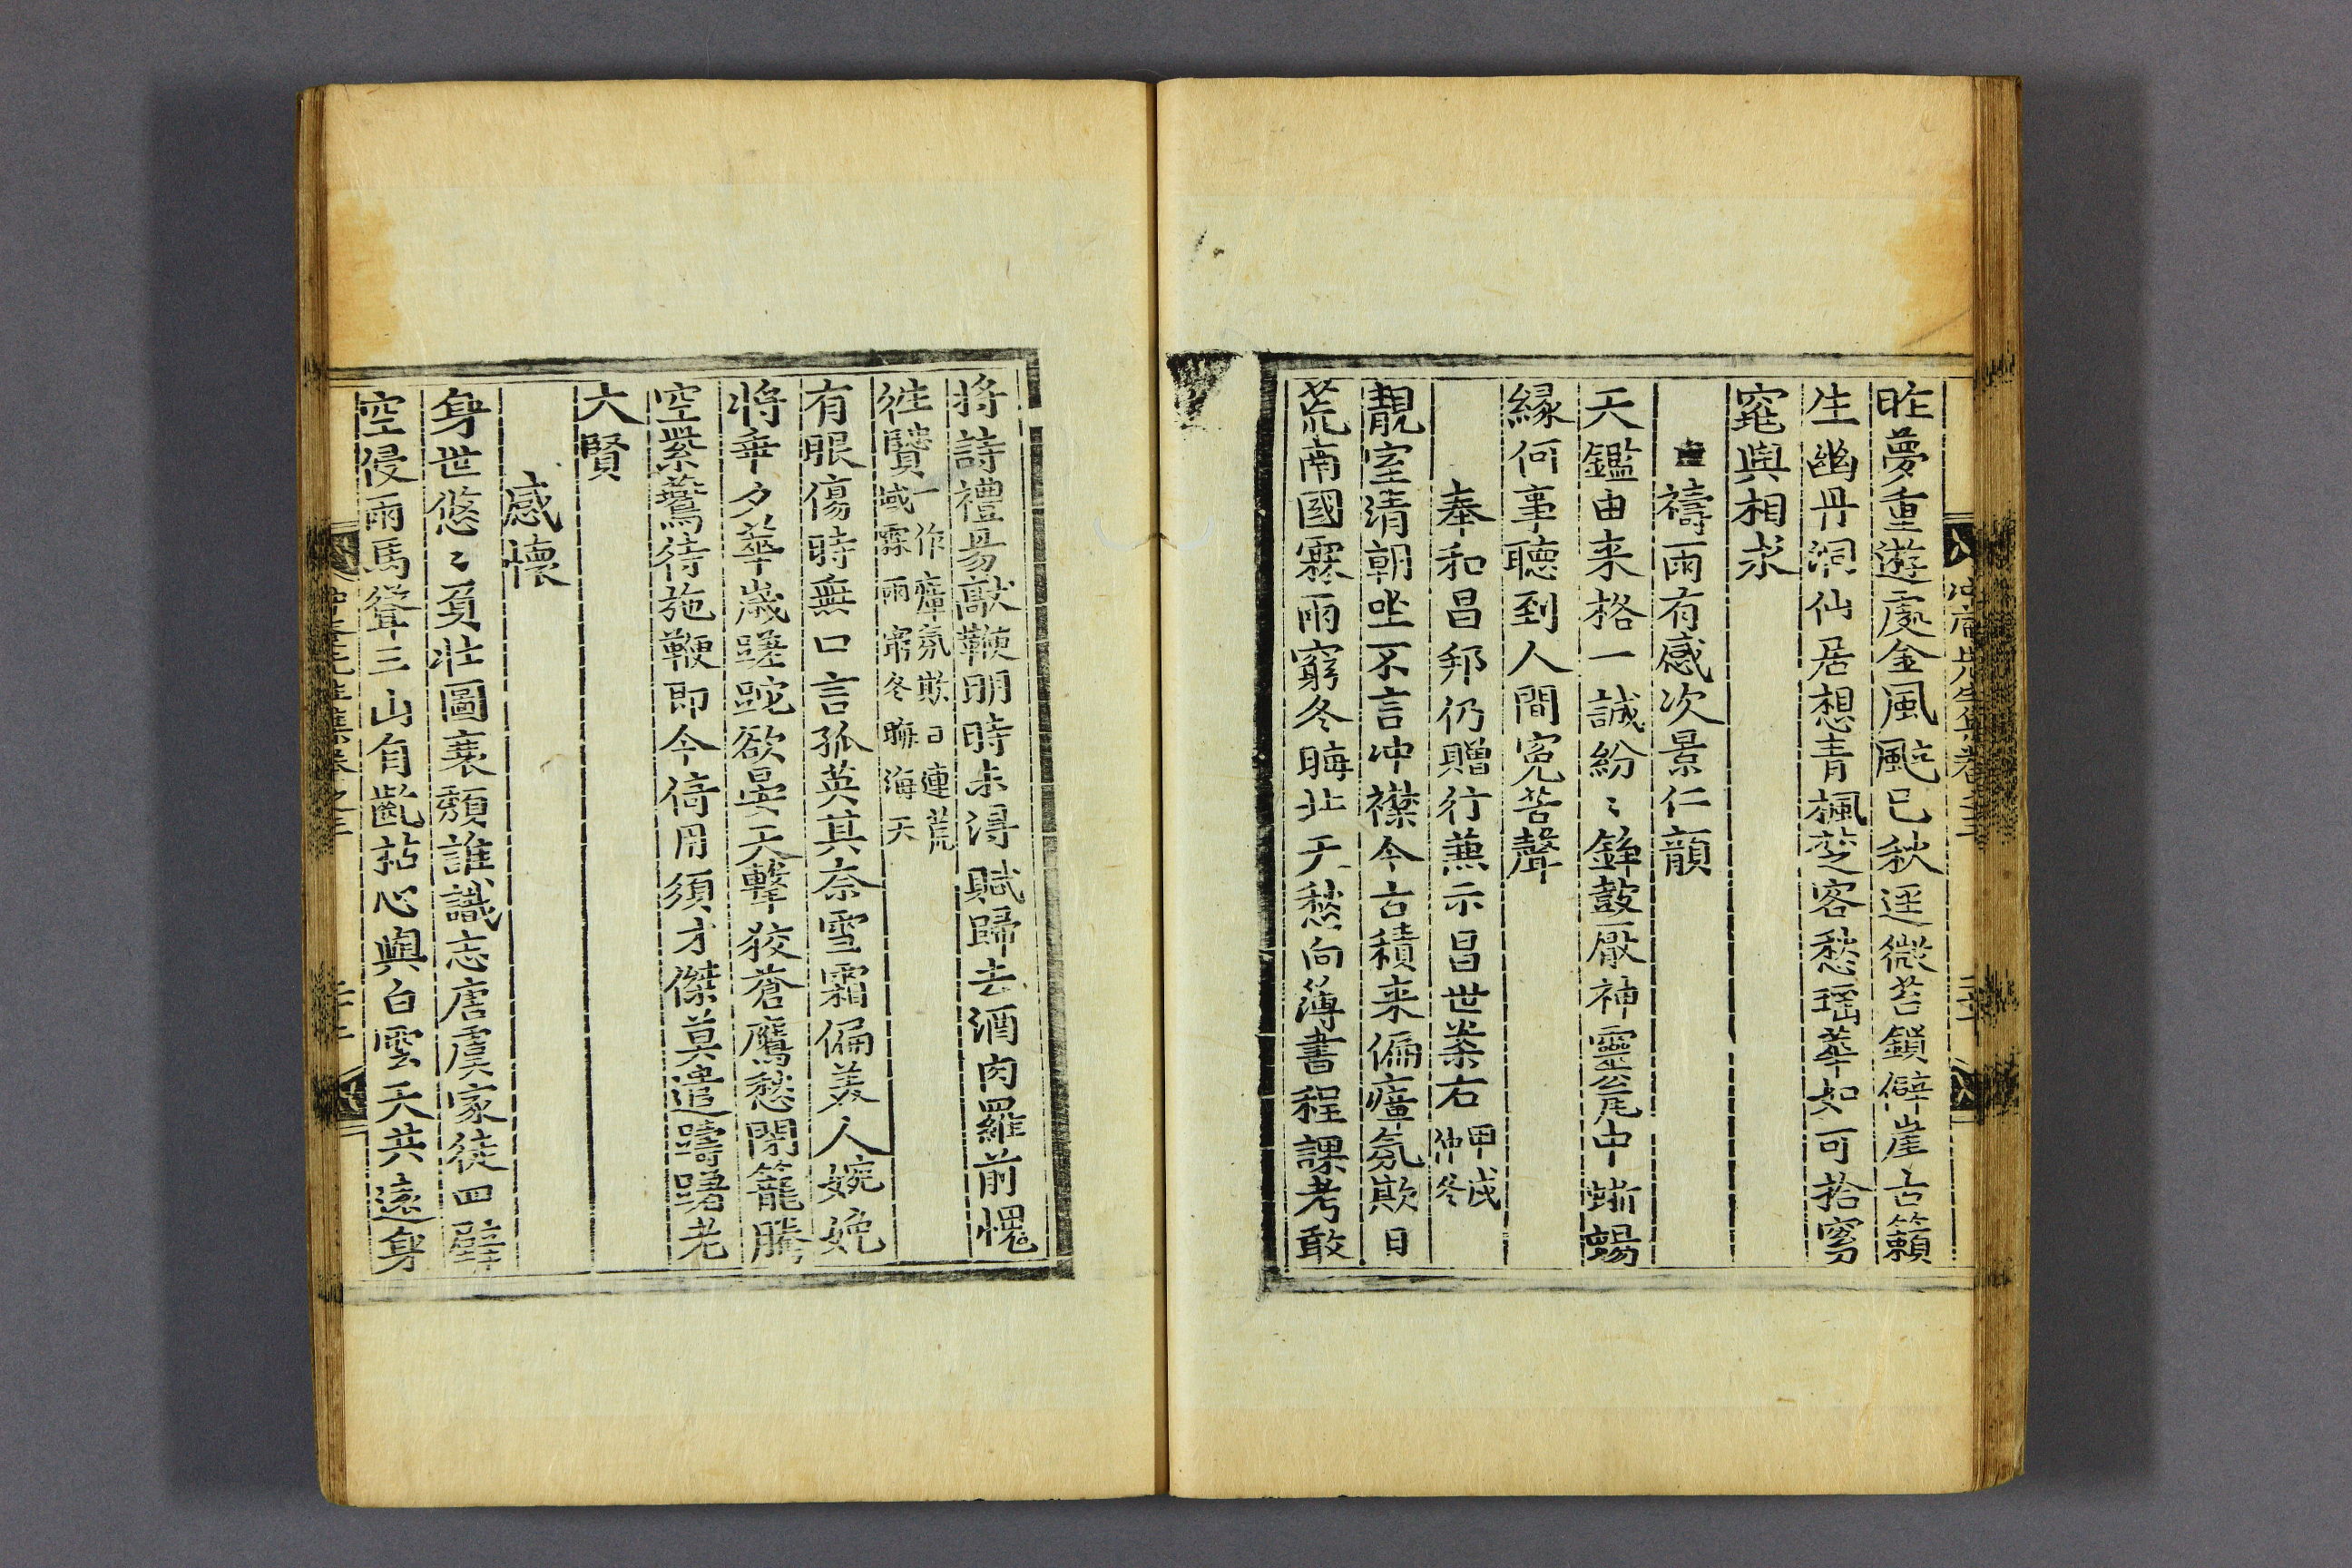 昨夢重遊處金風颭已秋逕微苔鎖僻崖古籟
生幽丹洞仙居想青楓楚客愁瑤華如可拾窈
窕與相求
禱雨有感次景仁韻
天鑑由来格一誠紛〻鉾鼓厭神靈瓮中蜥蜴
緣何事聽到人間寃苦聲
奉和昌邦仍贈行兼示昌世案右甲戌仲冬
靚室清朝坐不言冲襟今古積来偏瘴氛欺日
荒南國霖雨窮冬晦北天愁向薄書程課考敢
將詩禮易敲鞭明時未得賦歸去酒肉羅前愧
徃賢一作瘴氛欺日連荒域霖雨窮冬晦海天
有眼傷時無口言孤英其奈雪霜偏美人婉娩
將垂夕華歲蹉跎欲晏天擊狡蒼鷹愁閉籠騰
空紫鷰待施鞭即今倚用須才傑莫遣躊躇老
大賢
感懷
身世悠〻負壯圖衰顏誰識志唐虞家徒四壁
空侵雨馬聳三山自齕㧗心與白雲天共遠身